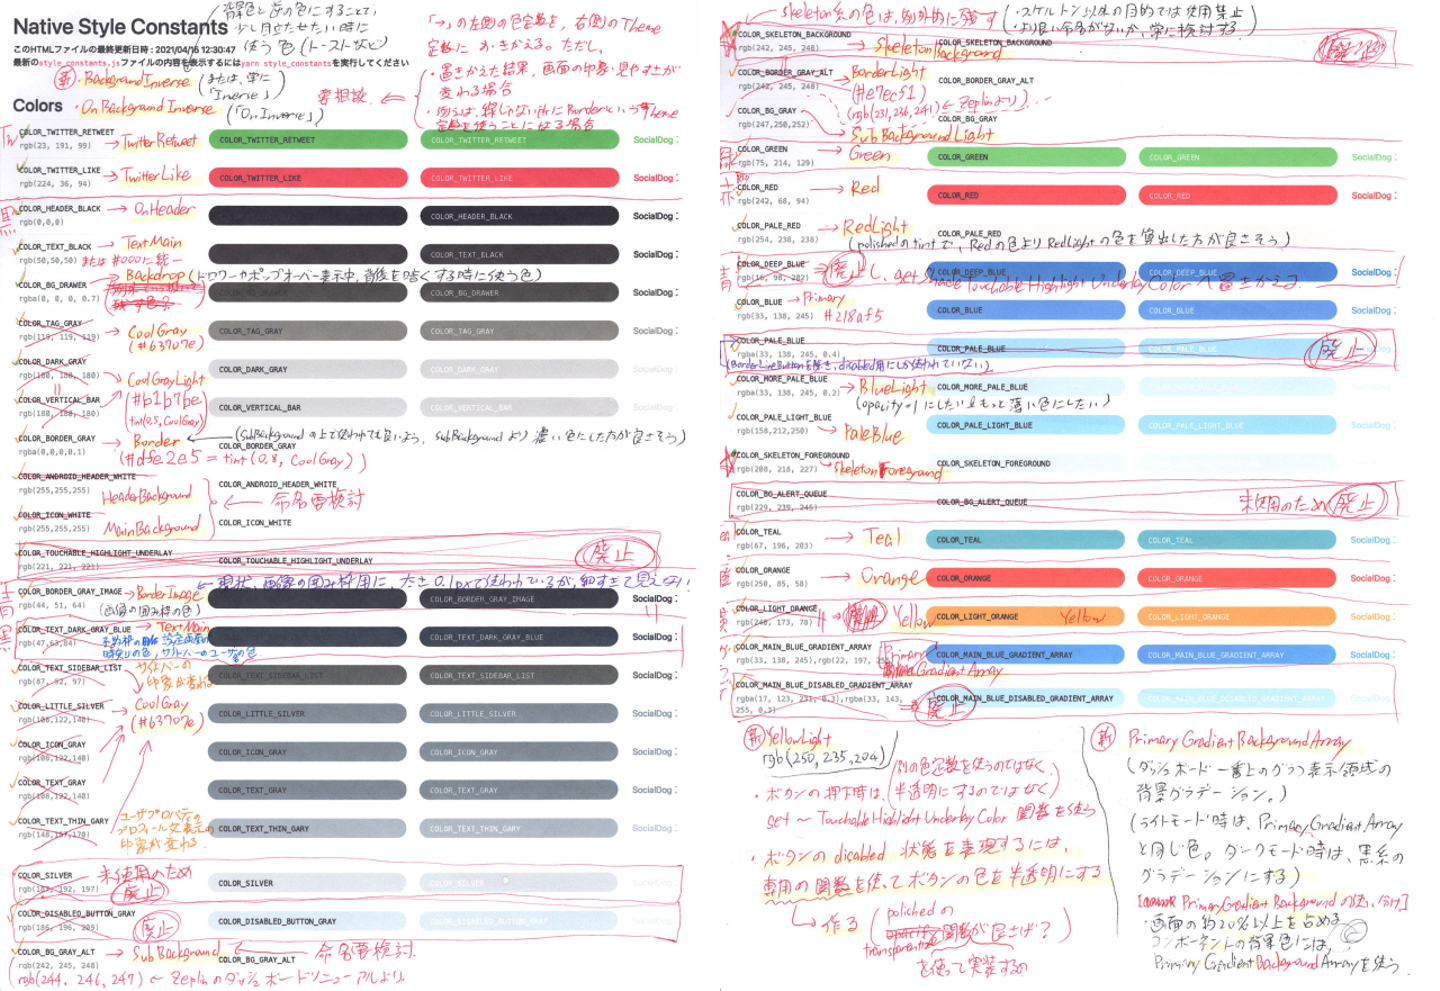 Native Style Constants
背景色と逆の色にすることで、
少し目立たせたい時に
使う色(トーストなど)
このHTMLファイルの最終更新日時 : 2021/04/16 12:30:47
最新のstyle_constants.jsファイルの内容を表示するにはyarn style_constantsを実行してください
新・BackgroundInverse
(または、常に
「Inverse」)
・OnBackgroundInverse
(「OnInverse」)
「→」の左側の色定数を、右側のTheme
定数におきかえる。ただし、
・置きかえた結果、画面の印象・見やすさが
変わる場合
要相談
定数を使うことになる場合
Colors
COLOR_TWITTER_RETWEET
rgb(23, 191, 99)
→TwitterRetweet
COLOR_TWITTER_RETWEET
COLOR_TWITTER_RETWEET
SocialDog
COLOR_TWITTER_LIKE
rgb(224, 36, 94)
→TwitterLike
COLOR_TWITTER_LIKE
COLOR_TWITTER_LIKE
SocialDog
COLOR_HEADER_BLACK
rgb(0,0,0)
→OnHeader
COLOR_HEADER_BLACK
SocialDog
COLOR_TEXT_BLACK
rgb(50,50,50)
→TextMain
または#000に統一
COLOR_TEXT_BLACK
SocialDog
→Backdrop(ドロワーやポップオーバー表示中、背後を暗くする時に使う色)
COLOR_BG_DRAWER
rgba(0, 0, 0, 0.7)
COLOR_BG_DRAWER
SocialDog
COLOR_TAG_GRAY
rgb(119, 119, 119)
→CoolGray
(#63707e)
COLOR_TAG_GRAY
COLOR_TAG_GRAY
SocialDog
COLOR_DARK_GRAY
rgb(180, 180, 180)
→CoolGrayLight
(#b1b7be
tint(0.5, CoolGray)
COLOR_DARK_GRAY
COLOR_DARK_GRAY
SocialDog
COLOR_VERTICAL_BAR
rgb(180, 180, 180)
COLOR_VERTICAL_BAR
COLOR_VERTICAL_BAR
SocialDog
COLOR_BORDER_GRAY
rgba(0,0,0,0.1)
→Border
(SubBackgroundの上で使われても良いよう、SubBackgroundより濃い色にした方が良さそう)
COLOR_BORDER_GRAY
(#dfe2e5 = tint(0.8, CoolGray))
COLOR_ANDROID_HEADER_WHITE
rgb(255,255,255)
HeaderBackground
COLOR_ANDROID_HEADER_WHITE
←命名要検討
COLOR_ICON_WHITE
rgb(255,255,255)
MainBackground
COLOR_ICON_WHITE
COLOR_TOUCHABLE_HIGHLIGHT_UNDERLAY
rgb(221, 221, 221)
COLOR_TOUCHABLE_HIGHLIGHT_UNDERLAY
廃止
←現状、画像の囲み枠用に、太さ0.1pxで使われているが、細すぎて見えない!
COLOR_BORDER_GRAY_IMAGE
rgb(44, 51, 64)
→BorderImage
(画像の囲み枠の色)
COLOR_BORDER_GRAY_IMAGE
SocialDog
COLOR_TEXT_DARK_GRAY_BLUE
rgb(47,63,84)
→TextMain
COLOR_TEXT_DARK_GRAY_BLUE
SocialDog
COLOR_TEXT_SIDEBAR_LIST
rgb(87, 92, 97)
サイドバーの
印象が変わる
COLOR_TEXT_SIDEBAR_LIST
COLOR_TEXT_SIDEBAR_LIST
SocialDog
COLOR_LITTLE_SILVER
rgb(108,122,140)
→CoolGray
(#63707e)
COLOR_LITTLE_SILVER
COLOR_LITTLE_SILVER
SocialDog
COLOR_ICON_GRAY
rgb(108,122,140)
COLOR_ICON_GRAY
COLOR_ICON_GRAY
SocialDog
COLOR_TEXT_GRAY
rgb(108,122,140)
COLOR_TEXT_GRAY
COLOR_TEXT_GRAY
SocialDog
COLOR_TEXT_THIN_GARY
印象が変わる
COLOR_TEXT_THIN_GARY
COLOR_TEXT_THIN_GARY
SocialDog
COLOR_SILVER
未使用のため
廃止
COLOR_SILVER
COLOR_SILVER
COLOR_DISABLED_BUTTON_GRAY
rgb(186, 196, 209)
廃止
COLOR_DISABLED_BUTTON_GRAY
COLOR_DISABLED_BUTTON_GRAY
COLOR_BG_GRAY_ALT
rgb(242, 245, 248)
→SubBackground
COLOR_BG_GRAY_ALT
←命名要検討
(rgb(244, 246, 247) ← Zeplinのダッシュボードリニューアルより
Skeleton系の色は、例外的に残す
・スケルトン以外の目的では使用禁止
・より良い命名がないか、常に検討する
COLOR_SKELETON_BACKGROUND
rgb(242, 245, 248)
→SkeletonBackground
COLOR_SKELETON_BACKGROUND
COLOR_BORDER_GRAY_ALT
rgb(242, 245, 248)
→BorderLight
(#e7ecf1)
COLOR_BORDER_GRAY_ALT
(rgb(231,236,241)←Zeplinより)
COLOR_BG_GRAY
rgb(247,250,252)
COLOR_BG_GRAY
SubBackgroundLight
COLOR_GREEN
rgb(75, 214, 129)
→Green
COLOR_GREEN
COLOR_GREEN
SocialDog
COLOR_RED
rgb(242, 68, 94)
→Red
COLOR_RED
COLOR_RED
SocialDog
COLOR_PALE_RED
rgb(254, 238, 238)
→RedLight
COLOR_PALE_RED
(polishedのtintで、Redの色よりRedLightの色を算出した方が良さそう)
COLOR_DEEP_BLUE
rgb(16, 98, 202)
→廃止し、getShadeTouchableHighlightUnderlayColorへ置きかえる
COLOR_DEEP_BLUE
COLOR_DEEP_BLUE
SocialDog
COLOR_BLUE
rgb(33, 138, 245)
→Primary
#218af5
COLOR_BLUE
COLOR_BLUE
SocialDog
COLOR_PALE_BLUE
rgba(33, 138, 245, 0.4)
COLOR_PALE_BLUE
COLOR_PALE_BLUE
廃止
(BorderLineButtonを除き、disabled用にしか使われていない)
COLOR_MORE_PALE_BLUE
rgba(33, 138, 245, 0.2)
→BlueLight
(opacity=1にしたい&もっと薄い色にしたい)
COLOR_MORE_PALE_BLUE
COLOR_PALE_LIGHT_BLUE
rgb(158,212,250)
→PaleBlue
COLOR_PALE_LIGHT_BLUE
COLOR_PALE_LIGHT_BLUE
SocialDog
COLOR_SKELETON_FOREGROUND
rgb(208, 218, 227)
→SkeletonForeground
COLOR_SKELETON_FOREGROUND
COLOR_BG_ALERT_QUEUE
rgb(229, 239, 245)
COLOR_BG_ALERT_QUEUE
未使用のため廃止
COLOR_TEAL
rgb(67, 196, 203)
→Teal
COLOR_TEAL
COLOR_TEAL
SocialDog
COLOR_ORANGE
rgb(250, 85, 58)
→Orange
COLOR_ORANGE
COLOR_ORANGE
SocialDog
COLOR_LIGHT_ORANGE
rgb(248, 173, 78)
Yellow
COLOR_LIGHT_ORANGE
Yellow
COLOR_LIGHT_ORANGE
SocialDog
COLOR_MAIN_BLUE_GRADIENT_ARRAY
rgb(33, 138, 245),rgb(22, 197,
Primary
GradientArray
COLOR_MAIN_BLUE_GRADIENT_ARRAY
COLOR_MAIN_BLUE_GRADIENT_ARRAY
SocialDog
COLOR_MAIN_BLUE_DISABLED_GRADIENT_ARRAY
255, 0.3)
→廃止
COLOR_MAIN_BLUE_DISABLED_GRADIENT_ARRAY
COLOR_MAIN_BLUE_DISABLED_GRADIENT_ARRAY
新 YellowLight
rgb(250, 235, 204)
・ボタンの押下時は、(別の色定数を使うのではなく、
半透明にするのではなく)
set~TouchableHighlightUnderlayColor関数を使う
・ボタンのdisabled状態を表現するには、
専用の関数を使ってボタンの色を半透明にする
→作る(polishedの
transparentize関数が良さげ?)
を使って実装する
新 PrimaryGradientBackgroundArray
(ダッシュボード一番上のグラフ表示領域の
背景グラデーション。)
(ライトモード時は、PrimaryGradientArray
と同じ色。ダークモード時は、黒系の
グラデーションにする)
PrimaryGradientBackgroundの使い分け]
・画面の約20%以上を占める
コンポーネントの背景色には、
PrimaryGradientBackgroundArrayを使う